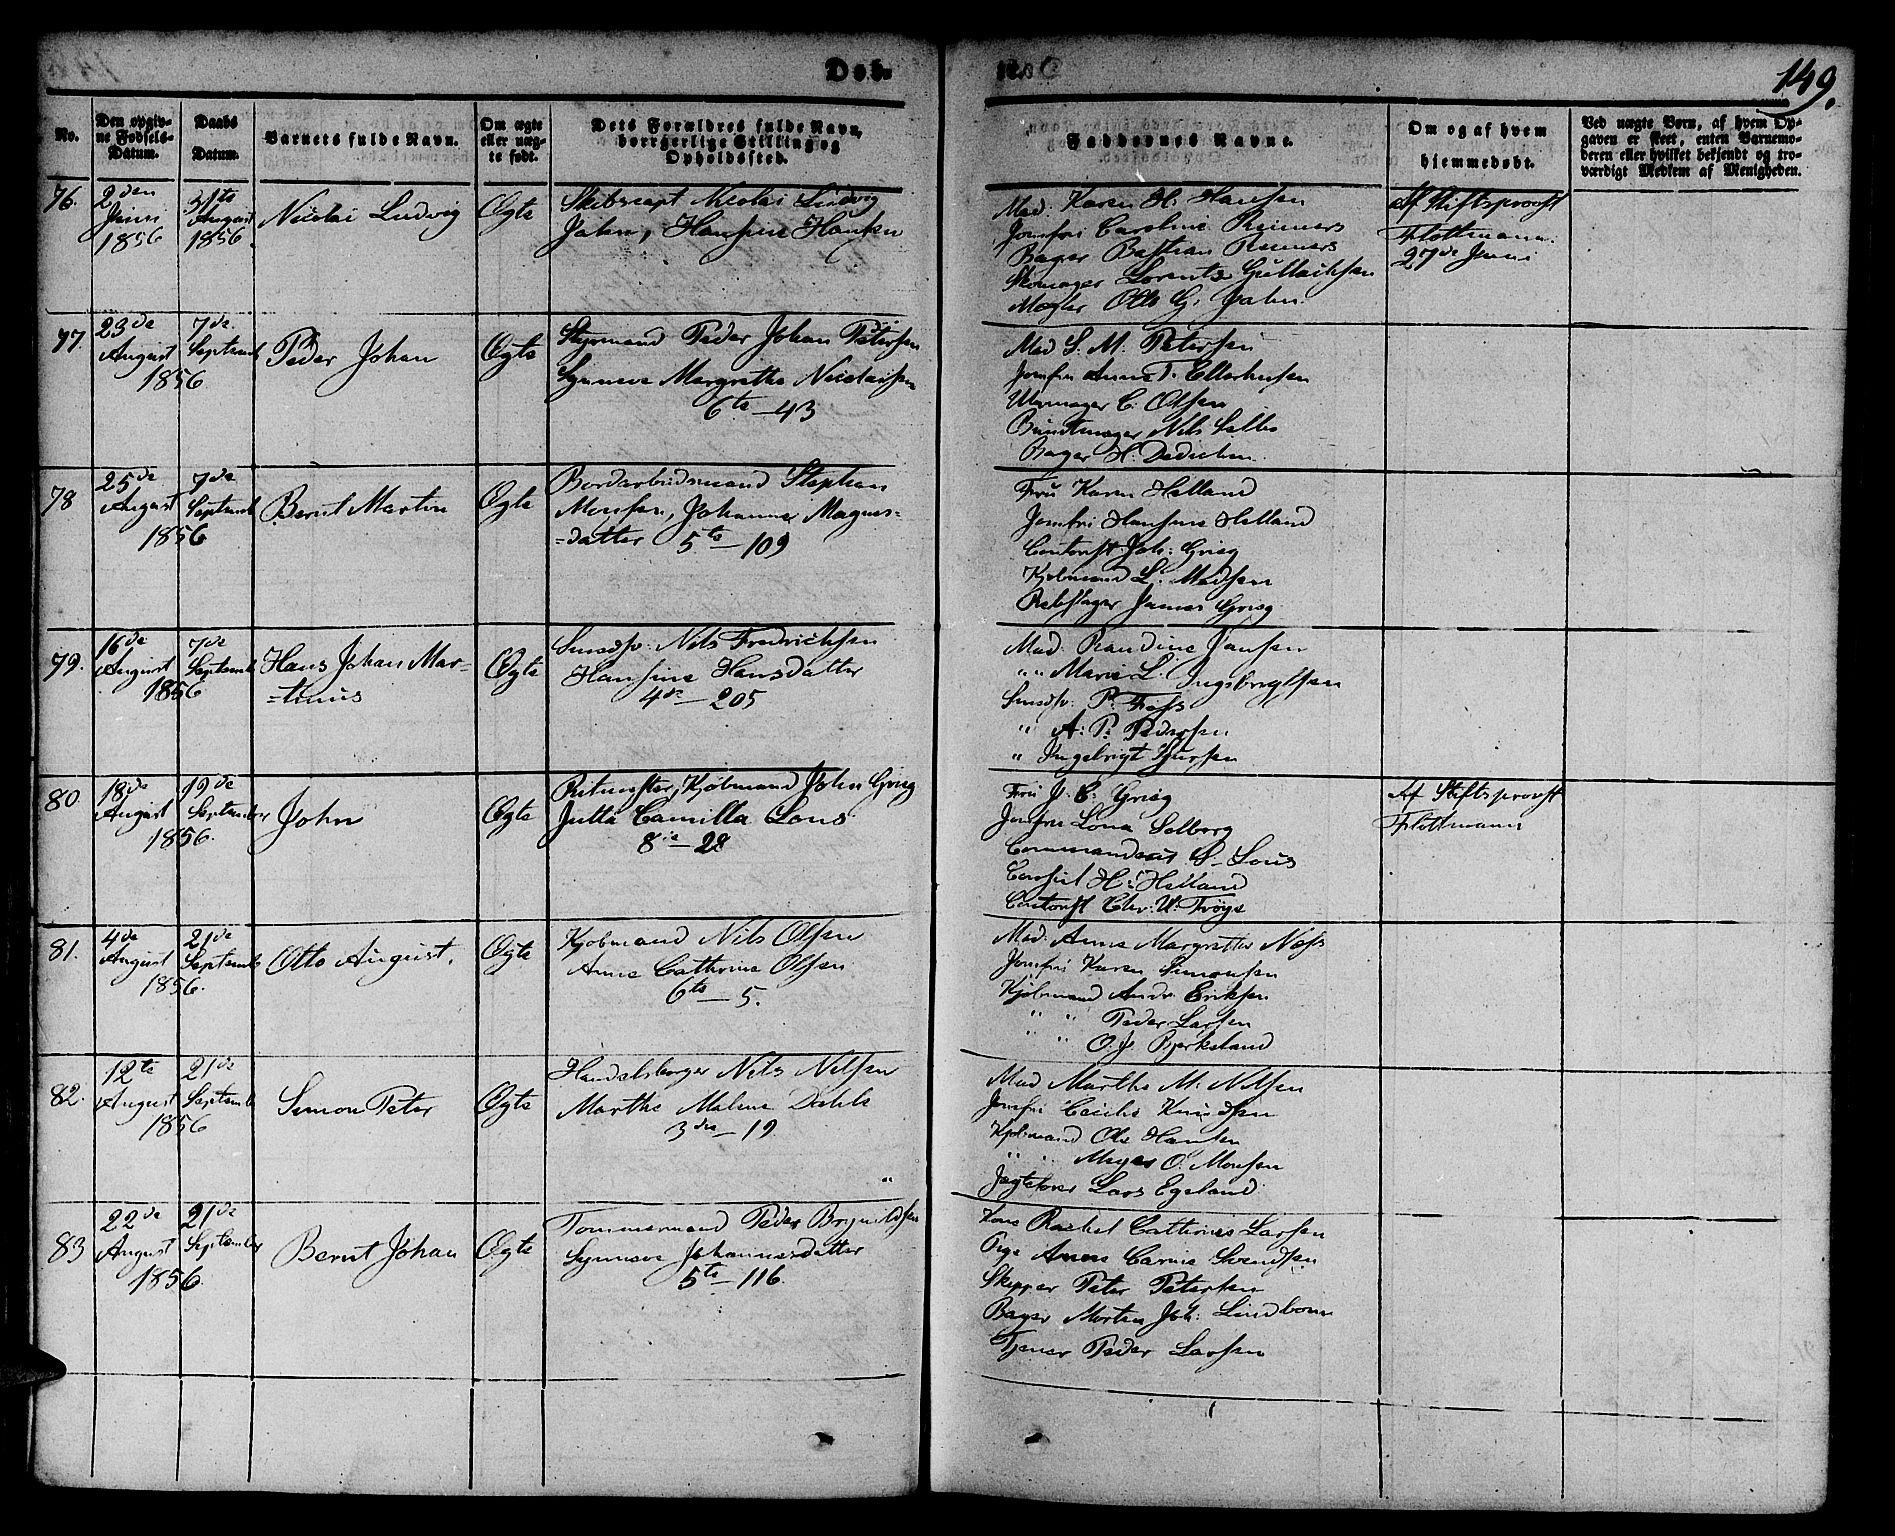 Døb-
149.
No.
Den opgiv-
ne Fødsels-
Datum.
Daabs
Datum.
Barnets fulde Navn.
Om ægte
eller uæg-
te født.
Dets Forældres fulde Navn,
borgerlige Stilling og
Opholdssted.
Faddernes Navne.
Om og af hvem
hjemmedøbt.
Ved uægte Børn, af hvem Op-
gaven er skeet, enten Barnemo-
deren eller hvilket bekjendt og tro-
værdigt Medlem af Menigheden.
76.
2den
Juni
1856
31te
August
1856.
Nicolai Ludvig
Ægte
Skibscapt Nicolai Ludvig
Jahn, Hansine Hansen
Mad. Karen H. Hansen
Jomfru Caroline Reimers
Bager Bastian Reimers
Skomager Lorentz Gullachsen
Mægler Otto G. Jahn
Af Stiftsprovst
Flottmann.
27de Juni
77.
23de
August
1856
7de
Septemb
Peder Johan
Ægte
Styrmand Peder Johan Petersen
Synneve Margrethe Nicolaisen
6te - 43
Mad S. M. Petersen
Jomfru Anne T. Ellerhusen
Uhrmager C. Olsen
Buntmager Nils
Bager H. Dedichen.
78
25de
August
1856
7de
Septemb
Bernt Martin
Ægte
Bordarbeidsmand Stephan
Monsen, Johanne Magnus-
=datter 5te - 109
Fru Karen Helland
Jomfru Hansine Helland
Contorist Joh: Grieg
Kjøbmand L. Madsen
Rebslager James Grieg
79.
16de
August
1856
7de
Septemb
Hans Johan Mar-
=tinus
Ægte
Snedkr. Nils Fredrichsen
Hansine Hansdatter
4de - 205
Mad. Randine Jansen
" " Marie L. Ingebrigtsen
Snedkr. P. Foss
" A. P. Pedersen
" Ingebrigt
80
18de
August
1856.
19de
September
John
Ægte
Ritmester, Kjøbmand John Grieg
Jutta Camilla Lous
8de - 28
Fru J. C. Grieg
Jomfru Lona Solberg
Commandeur S. Lous
Consul H. Helland
Contorist Chr. W.
Af Stiftsprovst
Flottmann
81.
4de
August
1856.
21de
Septemb
Otto August.
Ægte
Kjøbmand Nils Olsen
Anne Cathrine Olsen
6te - 5.
Mad. Anne Margrethe Næss
Jomfru Karen Simonsen
Kjøbmand Andr. Eriksen
" " Peder Larsen
" " O. J. Bjerkeland
82.
12te
August
1856
21de
Septemb
Simon Peter
Ægte
Handelsborger Nils Nilsen
Marthe Malene Dahle
3die - 19.
Mad Marthe M. Nilsen
Jomfru Cecilie Knudsen
Kjøbmand Ole Hansen
" " O. Monsen
Jægtefører Lars Egeland
83
22de
August
1856
21de
September
Bernt Johan
Ægte
Tømmermand Peder Brynildsen
Synneve Johannesdatter
5te - 116.
Kone Rachel Cathrine Larsen
Pige Anne Carine Svendsen
Skipper Peter Petersen
Bager Morten Joh. Lindbom
Tjener Peder Larsen